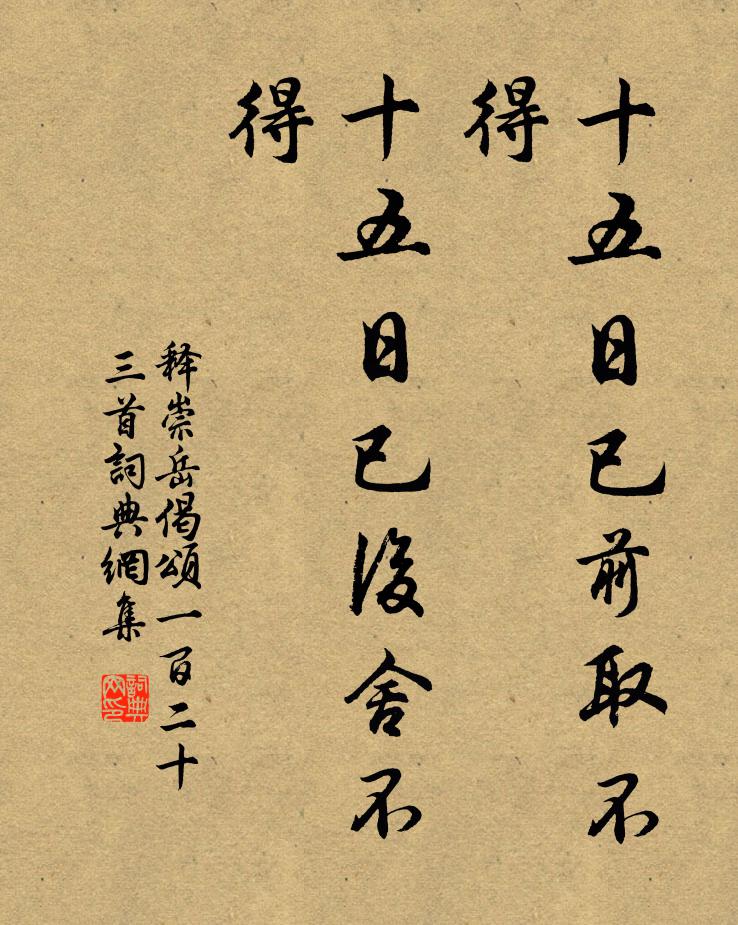 十五日已前取不
得
十五日已後舍不
得
释崇岳偈頌一百二十
三首詞典網集
詞典網印